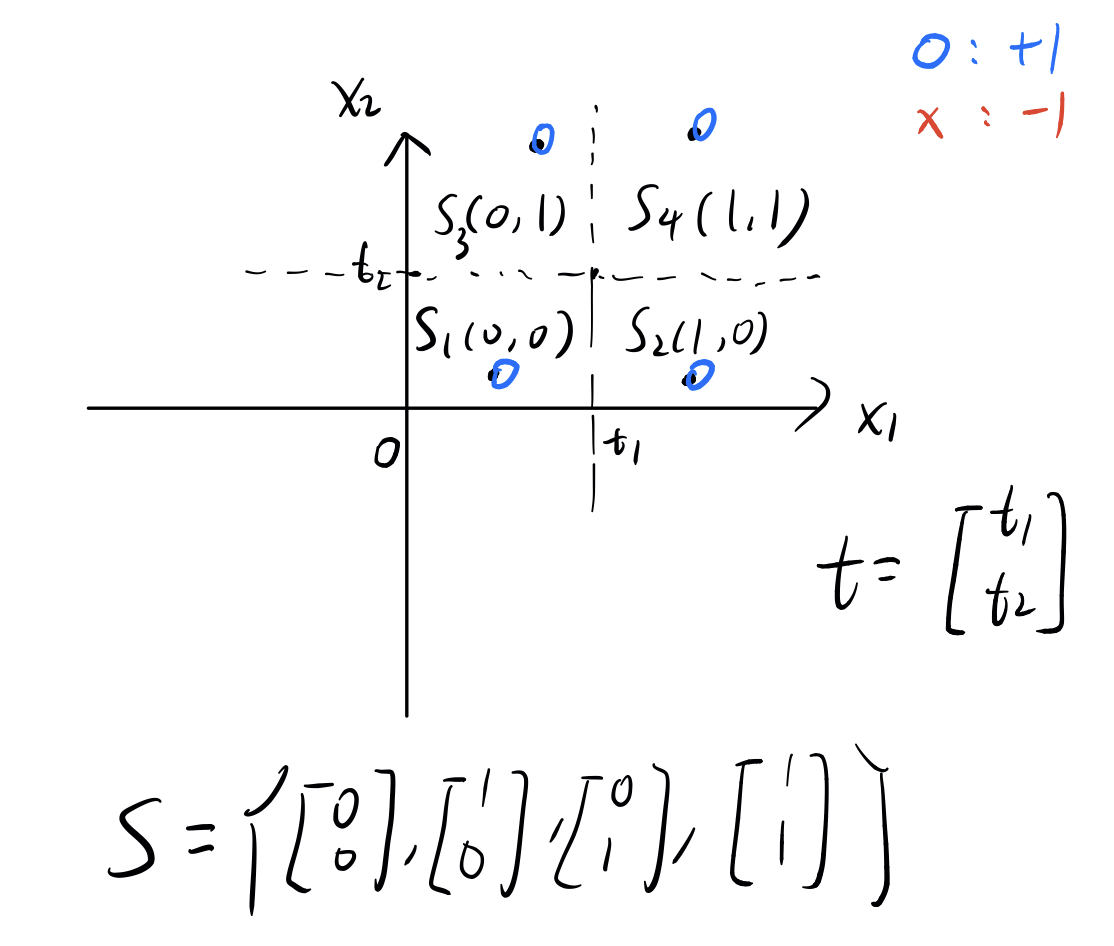 0 : +1
x : -1
x2
0 0
S3(0,1) S4(1,1)
t2
S1(0,0) S2(1,0)
0 0
x1
0 t1
t = [t1
t2]
S = {[0 0], [1 0], [0 1], [1 1]}